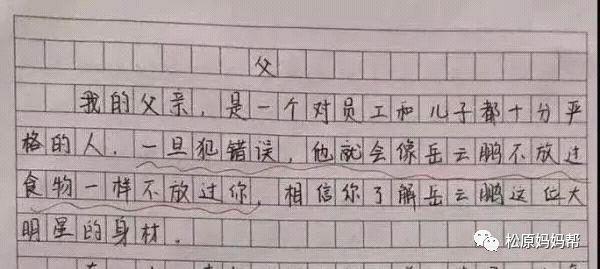 父
我的父亲，是一个对员工和儿子都十分严
格的人。一旦犯错误，他就会像岳云鹏不放过
食物一样不放过你，相信你了解岳云鹏这位大
明星的身材。
松原妈妈帮